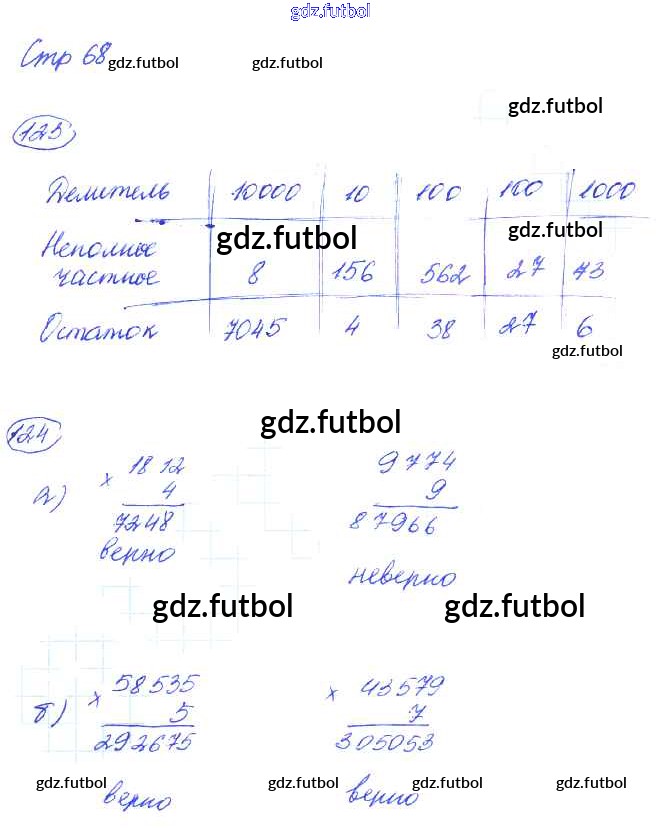 gdz.futbol
Стр 68 gdz.futbol gdz.futbol
gdz.futbol
123
Делитель 10000 10 100 100 1000
gdz.futbol gdz.futbol
Неполное
частное 8 156 562 27 43
Остаток 7045 4 38 27 6
gdz.futbol
gdz.futbol
124
а) × 1812 9774
4 9
7248 87966
верно неверно
gdz.futbol gdz.futbol
б) × 58535 × 43579
5 7
292675 305053
gdz.futbol gdz.futbol gdz.futbol gdz.futbol
верно верно